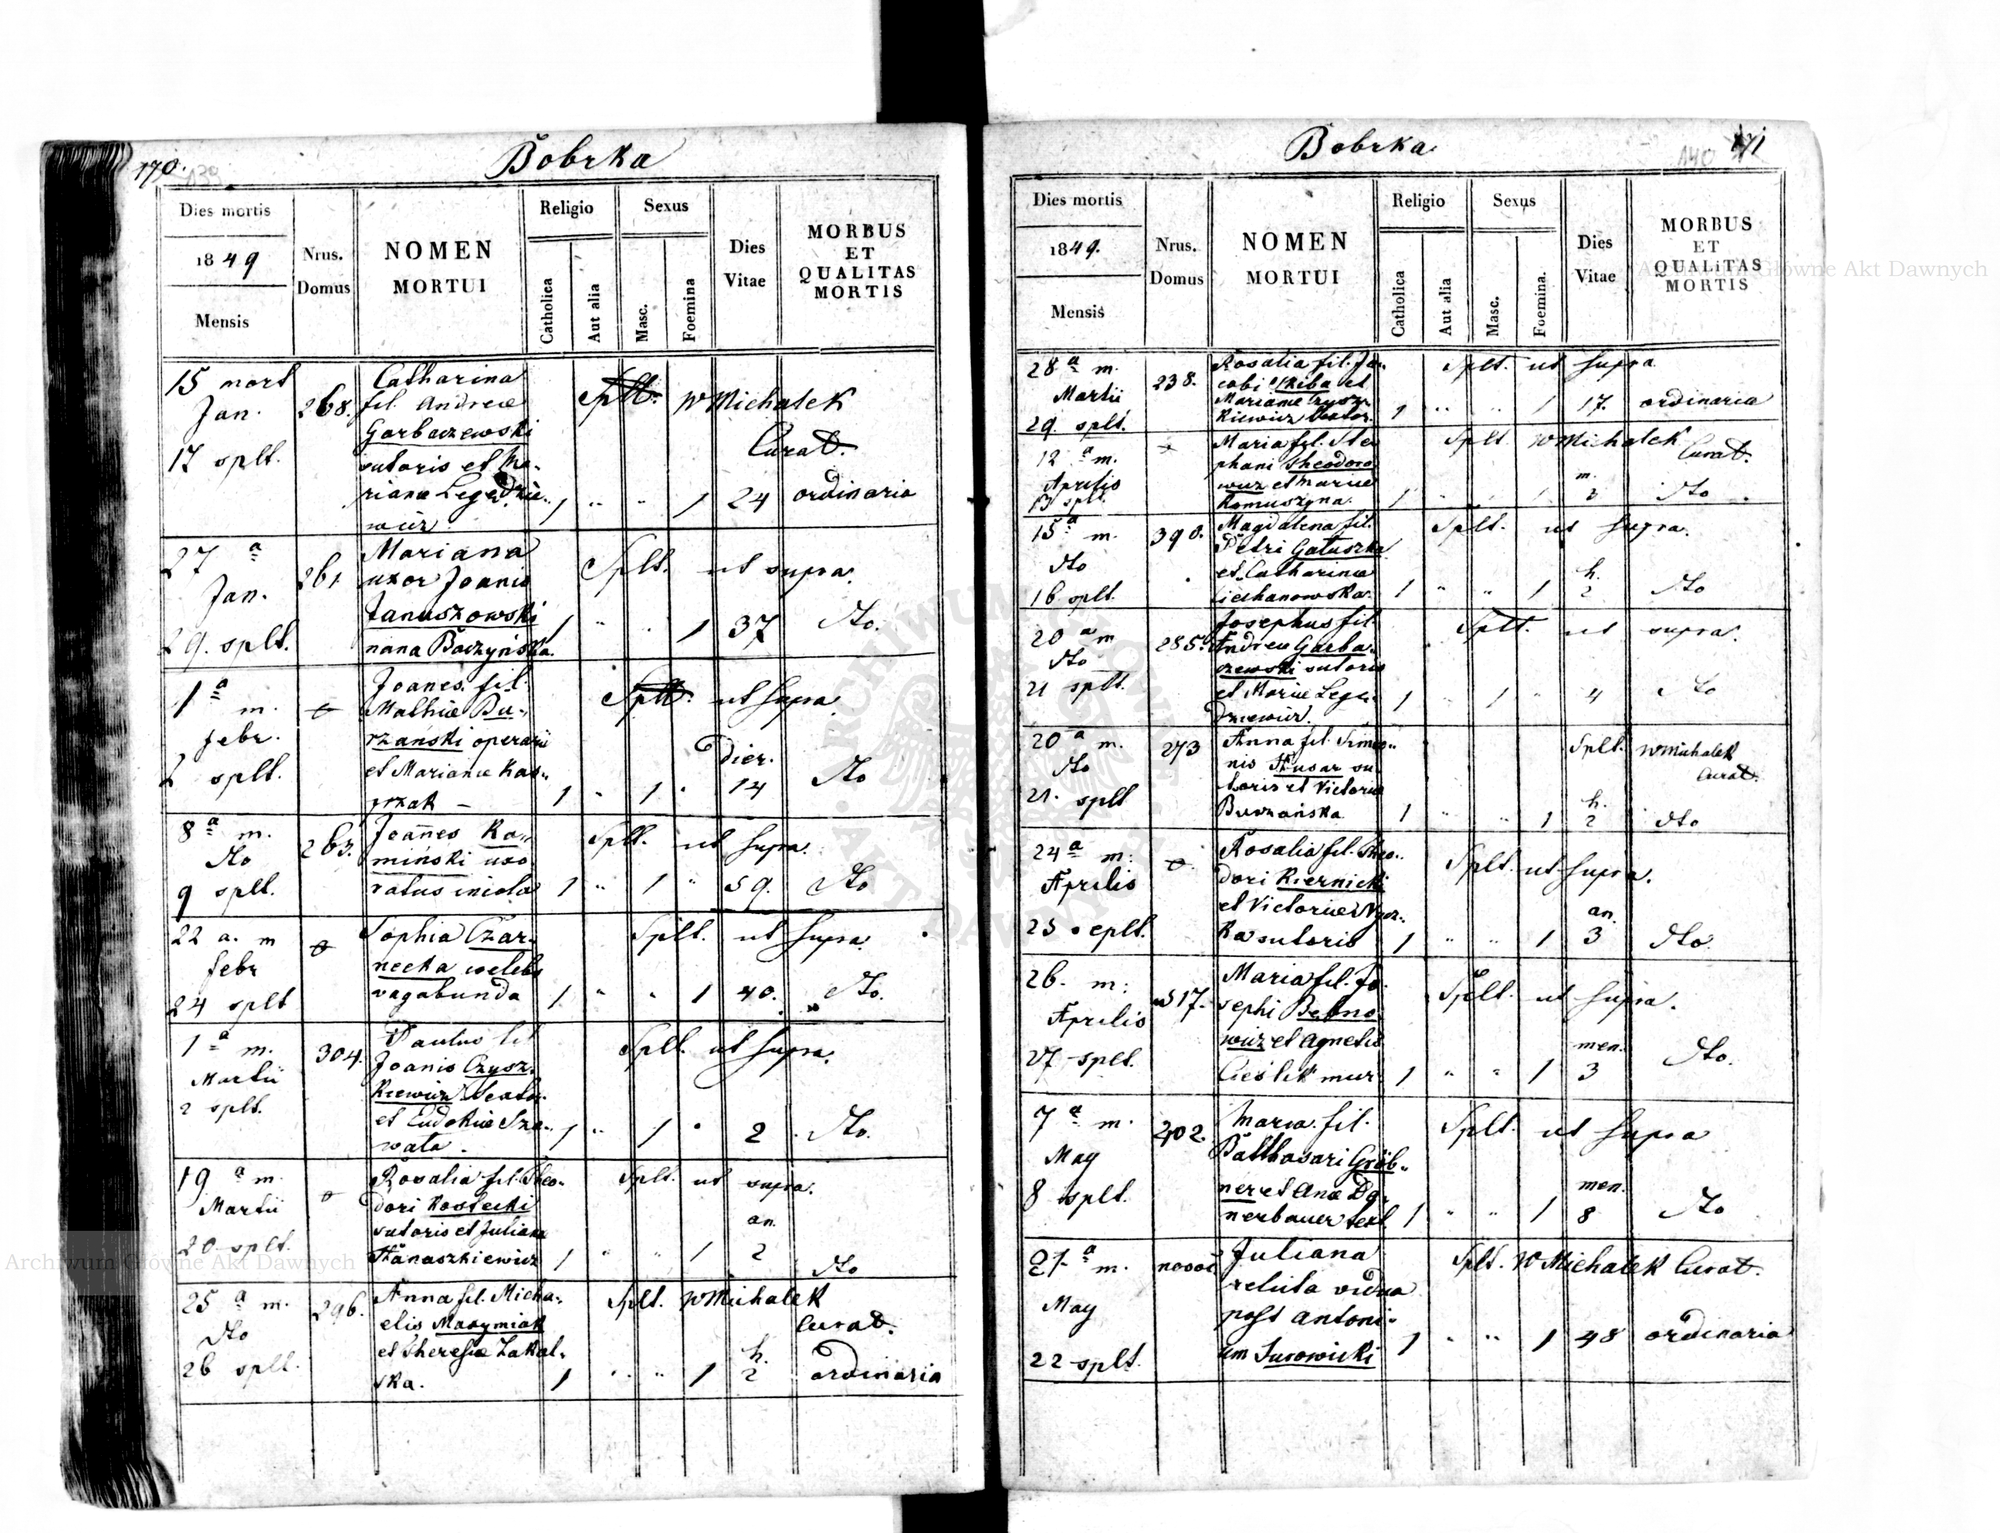 170.
139
Bobrka
Dies mortis
1849
Mensis
Nrus.
Domus
NOMEN
MORTUI
Religio
Catholica
Aut alia
Sexus
Masc.
Foemina
Dies
Vitae
MORBUS
ET
QUALITAS
MORTIS
15 mort
Jan.
17 splt.
268.
Catharina
fil. Andreæ
Garbaczewski
sutoris et Ma-
rianæ Legędzie-
wicz
Splt. W Michałek
Curat.
1 " " 1 24 ordinaria
27 a
Jan.
29. splt.
261
Mariana
uxor Joanis
Januszowski
nana Baczyńska.
Splt. ut supra.
1 " " 1 37 dto.
1 a m.
febr.
2 splt.
Joanes fil.
Mathiæ Bu-
rzański operarii
et Marianæ Kas-
przak
Splt. ut supra
dier.
1 " 1 " 14 dto
8 a m.
dto
9 splt.
263.
Joannes Ka-
miński uxo
ratus incola
Splt. ut supra.
1 " 1 " 59. dto
22 a. m
febr
24 splt
Sophia Czar-
necka cœlebs
vagabunda
Splt. ut supra.
1 " " 1 40. dto.
1 a m.
Martii
2 splt.
304.
Paulus fil
Joanis Czysz-
kiewicz textor.
et Eudokiæ Sza-
wała.
Splt. ut supra.
1 " 1 " 2 dto.
19 a m.
Martii
20 splt.
Rosalia fil. Theo-
dori Kostecki
sutoris et Julianæ
Hanaszkiewicz
Splt. ut supra.
an.
1 " " 1 2 dto
25 a m.
dto
26 splt.
296.
Anna fil. Micha-
elis Maxymiak
et Theresiæ Zakal-
ska.
Splt. W Michałek
Curat.
h.
1 " " 1 2 ordinaria
Bobrka
140
171
Dies mortis
1849.
Mensis
Nrus.
Domus
NOMEN
MORTUI
Religio
Catholica
Aut alia
Sexus
Masc.
Foemina.
Dies
Vitae
MORBUS
ET
QUALITAS
MORTIS
28 a m.
Martii
29. splt.
238.
Rosalia fil. Ja-
cobi Skiba et
Marianæ Czysz-
kiewicz textor.
Splt. ut supra
1 " " 1 17. ordinaria
12 a m.
Aprilis
13 splt.
Maria fil. Ste
phani Theodoro
wicz et Mariæ
Romuszyna.
Splt. W Michałek
Curat.
m.
1 2 dto
15 a m.
dto
16 splt.
390.
Magdalena fil.
Petri Gałuszka
et Catharinæ
Ciechanowska.
Splt. ut supra.
h.
1 " " 1 2 dto
20 a m
dto
21 splt.
285.
Josephus fil.
Andreæ Garba-
czewski sutoris
et Mariæ Legę-
dziewicz.
Splt. ut supra.
1 " 1 " 4 dto
20 a m.
dto
21. splt
273
Anna fil. Simeo-
nis Husar su-
toris et Victoriæ
Burzańska
Splt. W Michałek
Curat.
h.
1 " " 1 2 dto
24 a m:
Aprilis
25 splt.
Rosalia fil. Theo-
dori Kiernicki
et Victoriæ
ka sutoris
Splt. ut supra.
an.
1 " " 1 3 dto.
26. m:
Aprilis
27 splt.
517.
Maria fil. Jo-
sephi Bedno
wicz et Agnetis
Cieślik mur
Splt. ut supra.
men.
1 " " 1 3 dto.
7 a m.
May
8 splt.
202.
Maria fil.
Balthasari Gröb-
ner et Anæ Do-
nerbauer text
Splt. ut supra
men.
1 " " 1 8 dto
21 a m.
May
22 splt.
Juliana
relicta vidua
post Antoni-
um Surowicki
Splt. W Michałek Curat.
1 " " 1 48 ordinaria
Archiwum Główne Akt Dawnych
Archiwum Główne Akt Dawnych
ARCHIWUM GŁÓWNE
AKT DAWNYCH